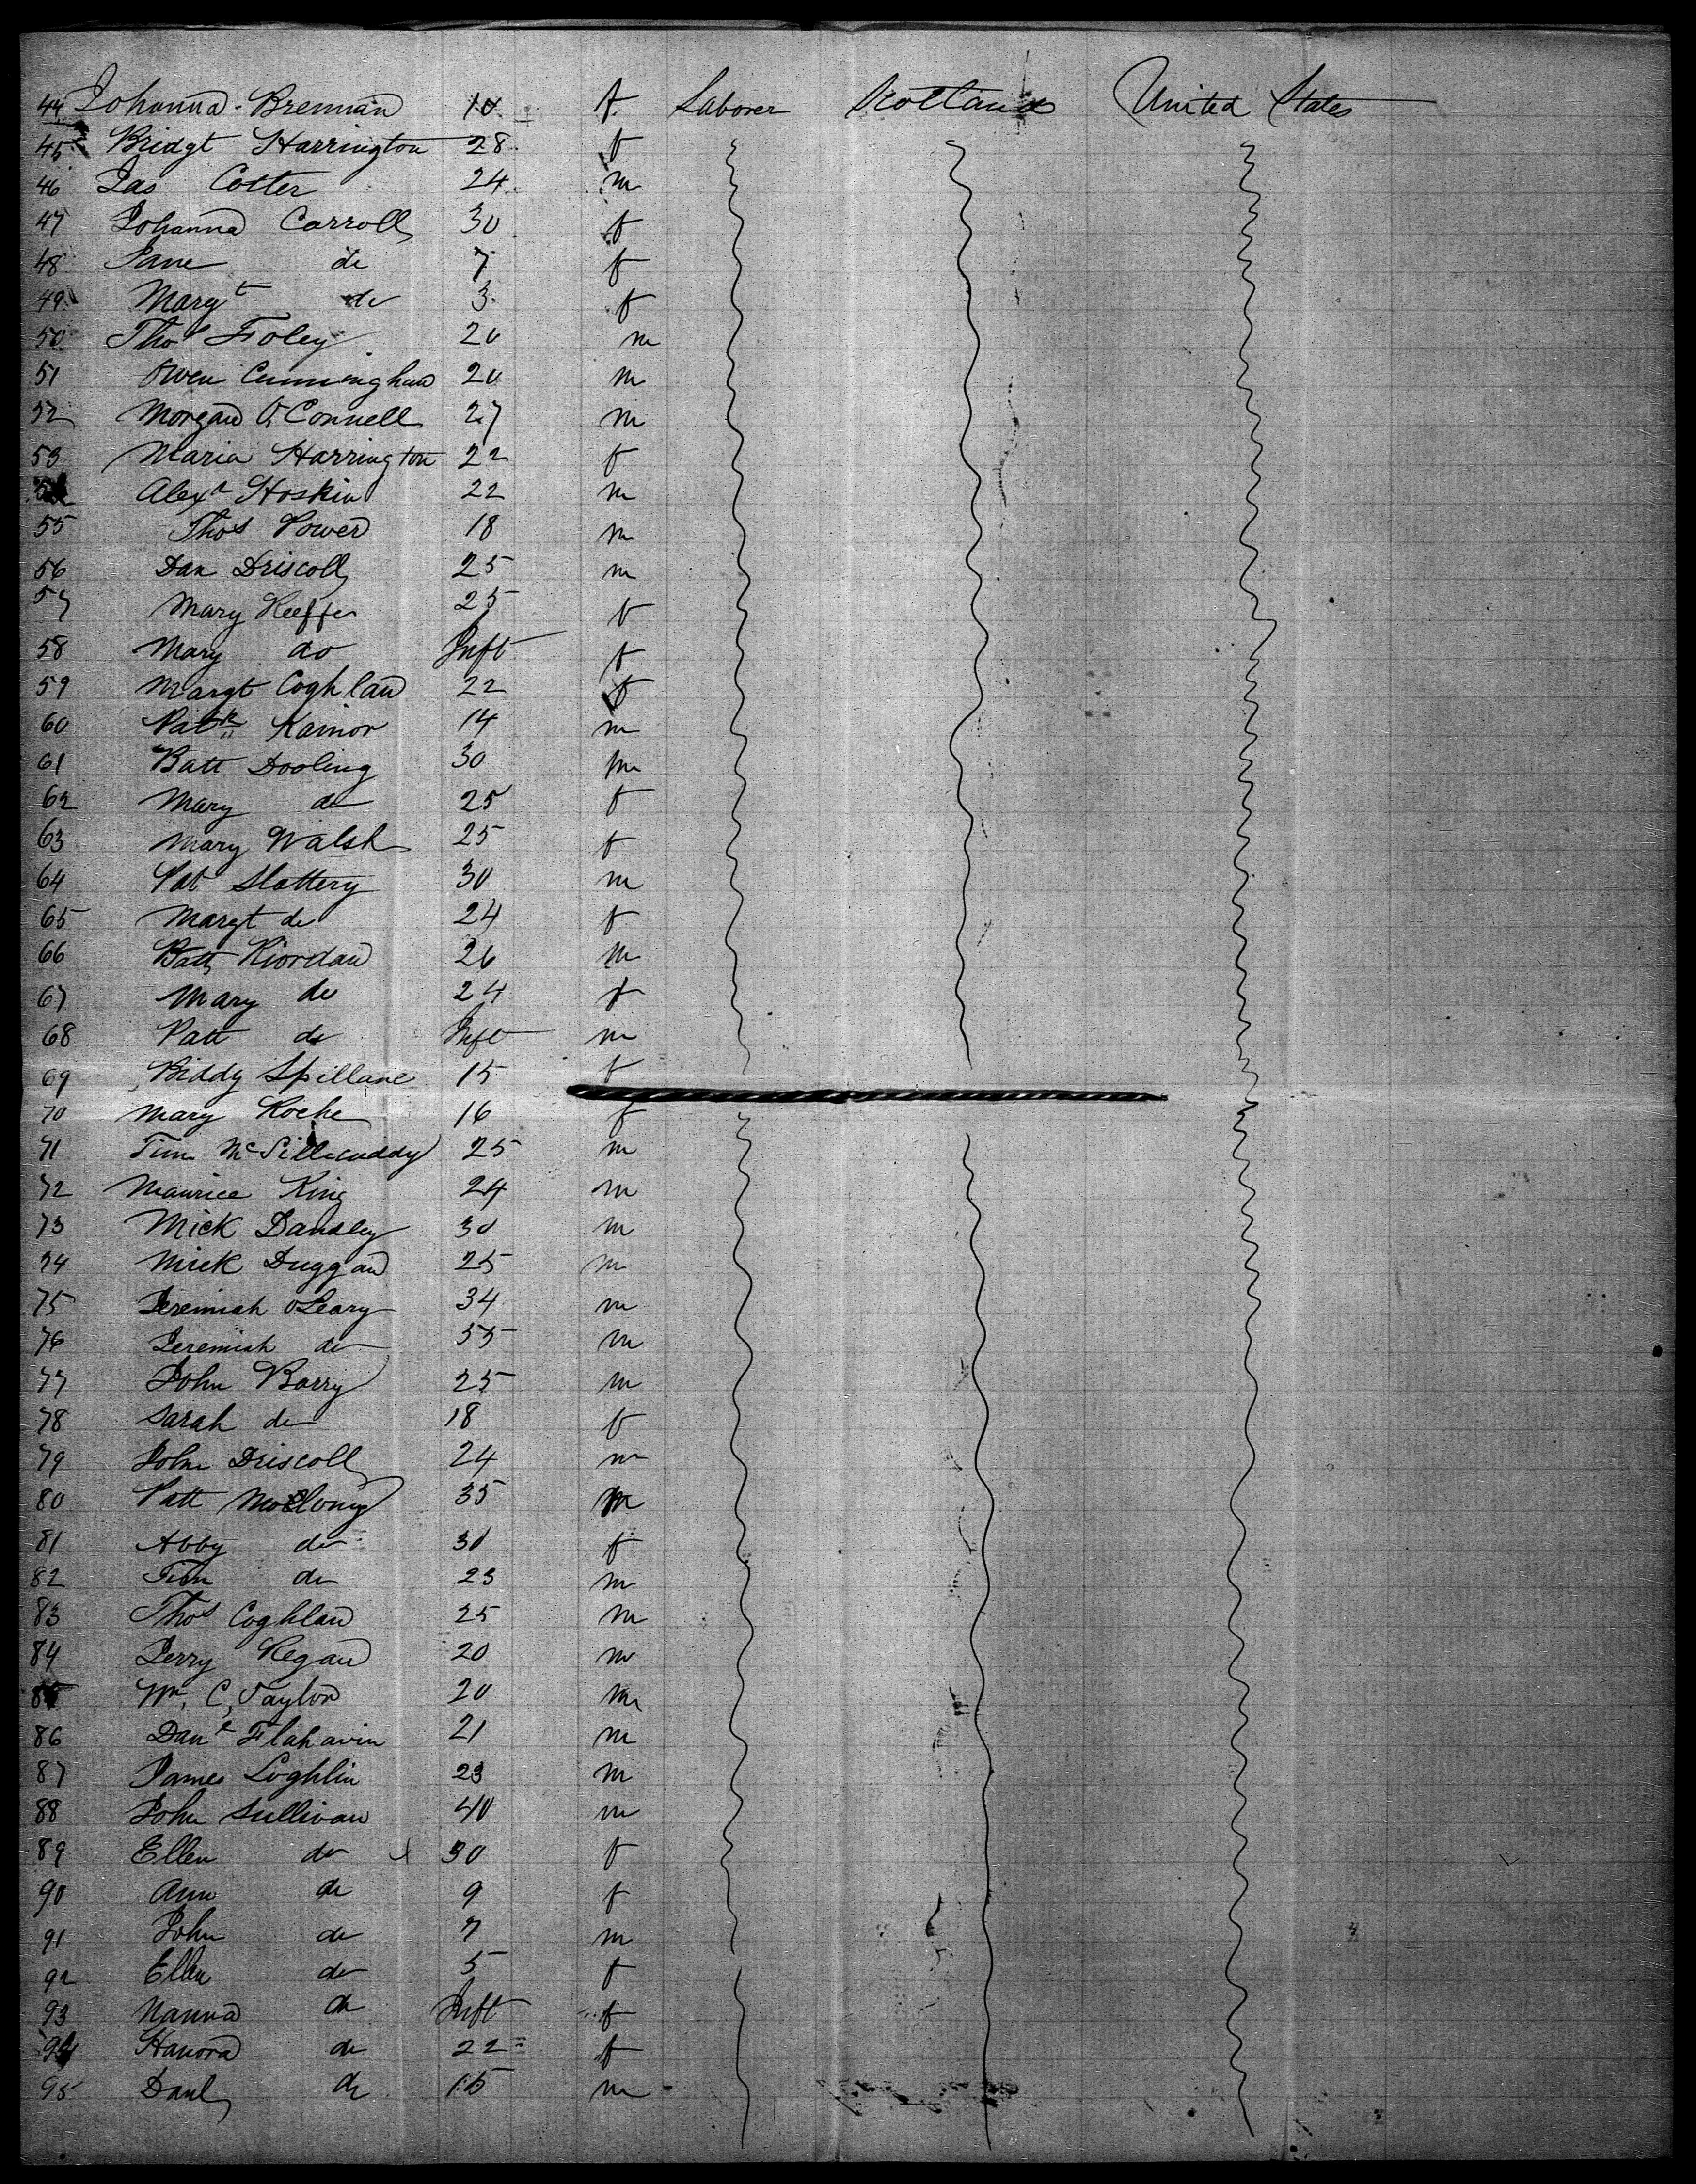 44 Johanna Brennan 10 f Laborer Scotland United States
45 Bridgt Harrington 28 f
46 Jas Cotter 24 m
47 Johanna Carroll 30 f
48 Jane do 7 f
49 Margt do 3 f
50 Thos Foley 20 m
51 Owen Cunningham 20 m
52 Morgan O'Connell 27 m
53 Maria Harrington 22 f
Alexr Hoskin 22 m
55 Thos Power 18 m
56 Dan Driscoll 25 m
57 Mary Keeffe 25 f
58 Mary do Inft f
59 Margt Coghlan 22 f
60 Patk Kainor 14 m
61 Batt Dooling 30 m
62 Mary do 25 f
63 Mary Walsh 25 f
64 Pat Slattery 30 m
65 Margt do 24 f
66 Batt Riordan 26 m
67 Mary do 24 f
68 Patt do Inft m
69 Biddy Spillane 15 f
70 Mary Roche 16 f
71 Tim McGillicuddy 25 m
72 Maurice King 24 m
73 Mick 30 m
74 Mick Duggan 25 m
75 Jeremiah oLeary 34 m
76 Jeremiah do 55 m
77 John Barry 25 m
78 Sarah do 18 f
79 John Driscoll 24 m
80 Patt 35 m
81 Abby do 30 f
82 Tim do 23 m
83 Thos Coghlan 25 m
84 Jerry Regan 20 m
85 Wm. C. Taylor 20 m
86 Danl Flahavin 21 m
87 James Loghlin 23 m
88 John Sullivan 40 m
89 Ellen do 30 f
90 Ann do 9 f
91 John do 7 m
92 Ellen do 5 f
93 Nanna do Inft f
94 Hanora do 22 f
95 Danl do 15 m